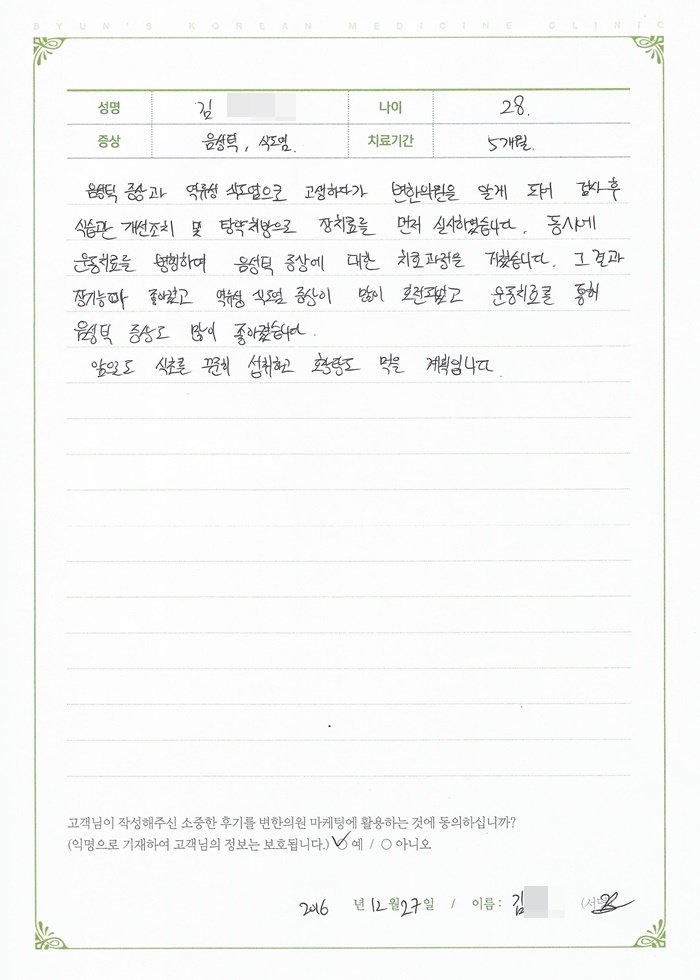 BYUN'S KOREAN MEDICINE CLINIC
성명 김 나이 28.
증상 음성틱, 식도염. 치료기간 5개월.
음성틱 증상과 역류성 식도염으로 고생하다가 변한의원을 알게 되어 검사 후
식습관 개선조치 및 탕약처방으로 장치료를 먼저 실시하였습니다. 동시에
운동치료를 병행하며 음성틱 증상에 대한 치료과정을 거쳤습니다. 그 결과
장기능이 좋아졌고 역류성 식도염 증상이 많이 호전되었고 운동치료를 통해
음성틱 증상도 많이 좋아졌습니다.
앞으로도 식초를 꾸준히 섭취하고 환약도 먹을 계획입니다.
고객님이 작성해주신 소중한 후기를 변한의원 마케팅에 활용하는 것에 동의하십니까?
(익명으로 기재하여 고객님의 정보는 보호됩니다.) 예 / 아니오
2016 년 12월 27일 / 이름 : 김 (서명